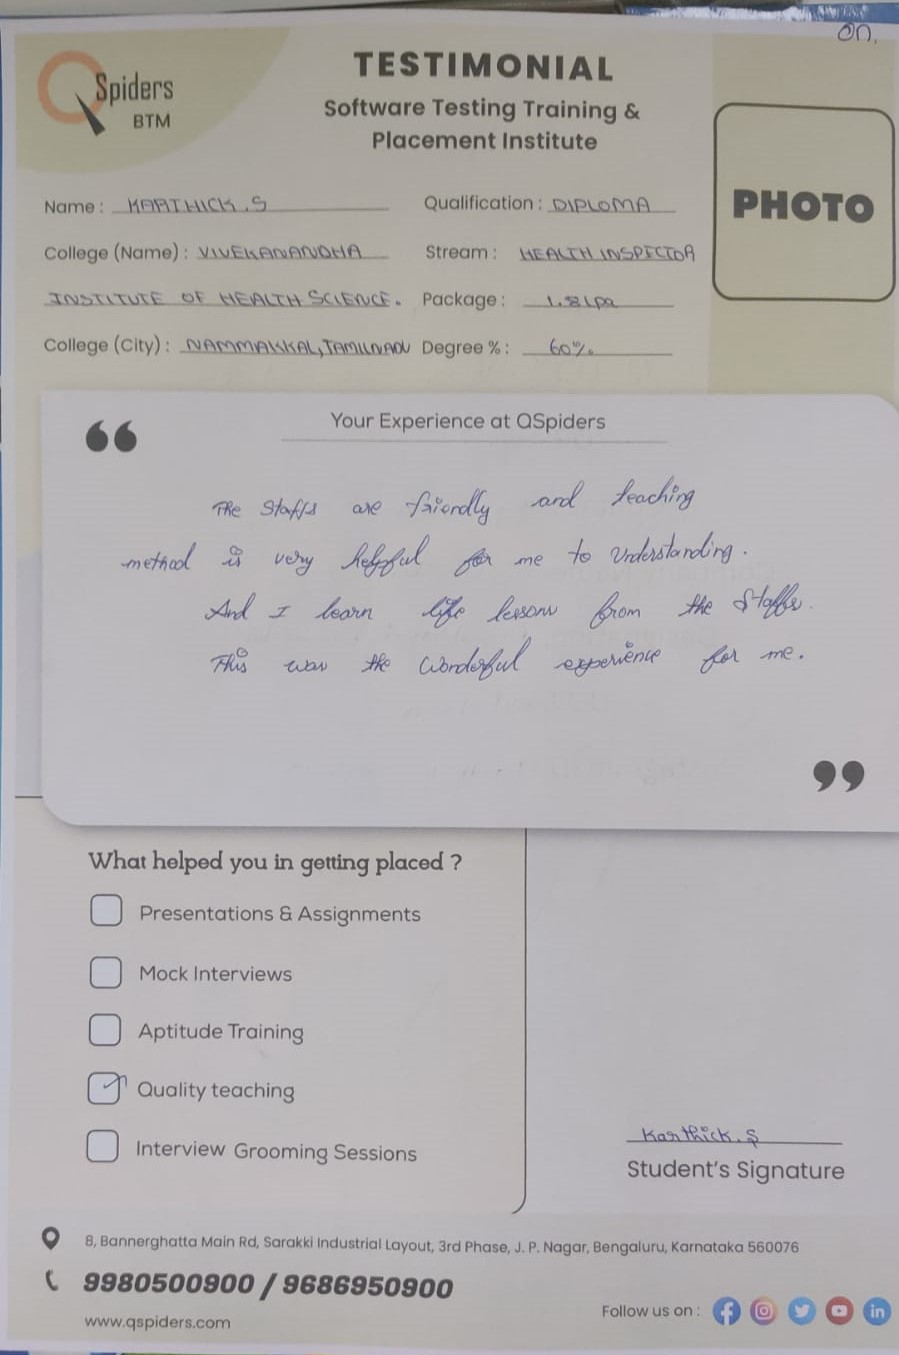 on.
QSpiders
BTM
TESTIMONIAL
Software Testing Training &
Placement Institute
PHOTO
Name : KARTHICK.S
Qualification : DIPLOMA
College (Name) : VIVEKANANDHA
Stream : HEALTH INSPECTOR
INSTITUTE OF HEALTH SCIENCE.
Package : 1.8 lpa
College (City) : NAMMAKKAL, TAMILNADU
Degree % : 60%.
Your Experience at QSpiders
“
The Staffs are friendly and teaching
method is very helpful for me to Understanding.
And I learn life lessons from the Staffs.
This was the Wonderful experience for me.
”
What helped you in getting placed ?
Presentations & Assignments
Mock Interviews
Aptitude Training
Quality teaching
Interview Grooming Sessions
Karthick.S
Student's Signature
8, Bannerghatta Main Rd, Sarakki Industrial Layout, 3rd Phase, J. P. Nagar, Bengaluru, Karnataka 560076
9980500900 / 9686950900
www.qspiders.com
Follow us on :